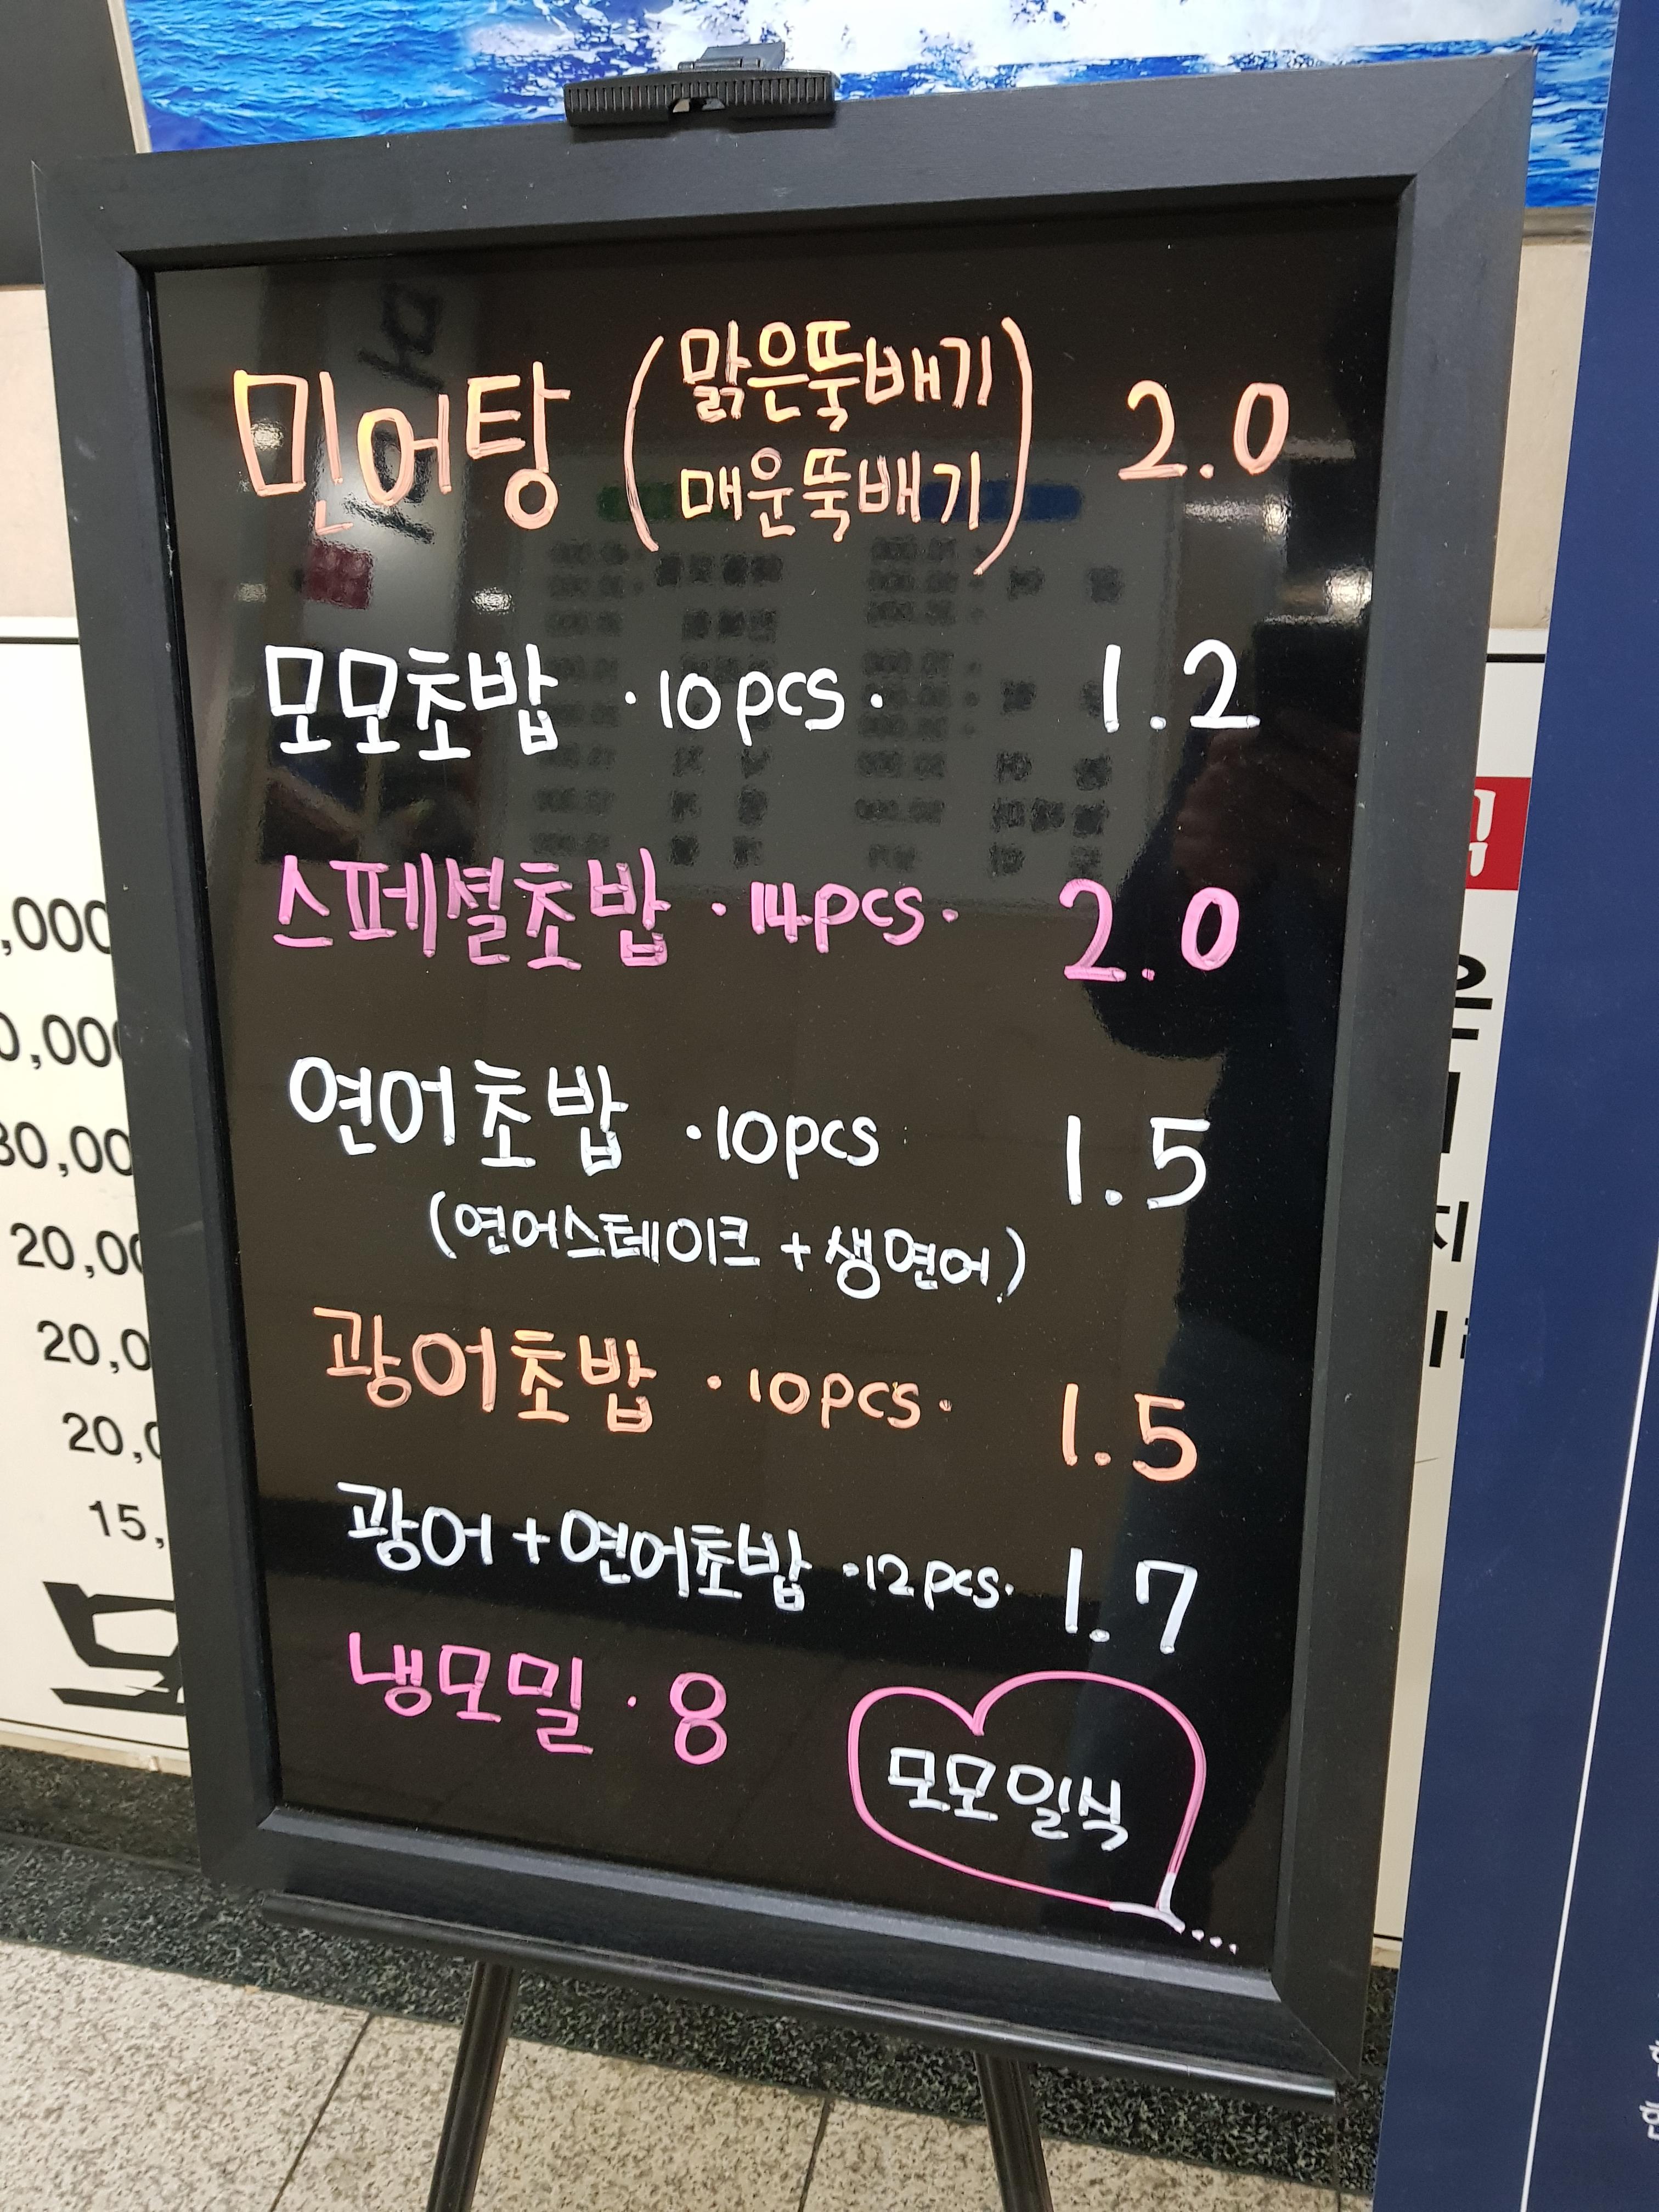 민어탕 (맑은뚝배기 매운뚝배기) 2.0
모모초밥 ·10pcs· 1.2
스페셜초밥 ·14pcs· 2.0
연어초밥 ·10pcs 1.5
(연어스테이크 + 생연어)
광어초밥 ·10pcs· 1.5
광어+연어초밥 ·12pcs· 1.7
냉모밀 · 8
모모일식
20,0
20,0
15,